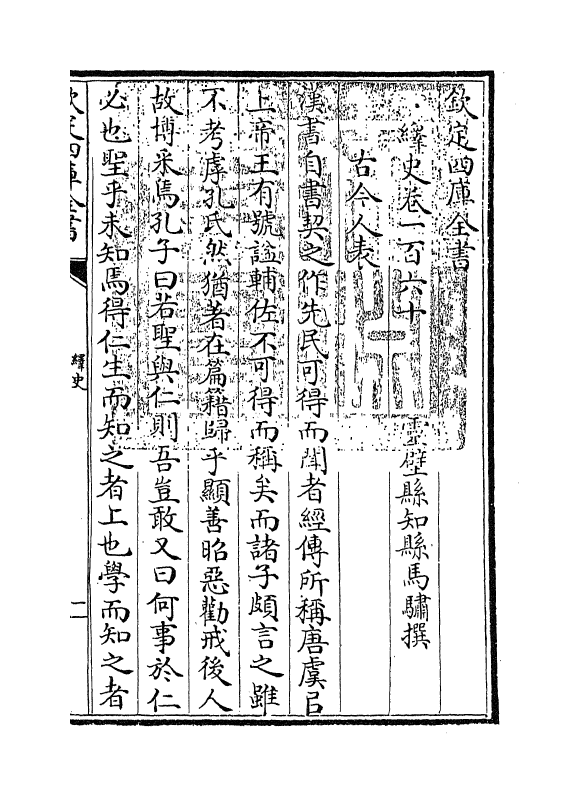 欽定四庫全書
繹史卷一百六十
靈壁縣知縣馬驌撰
古今人表
漢書自書契之作先民可得而聞者經傳所稱唐虞㠯
上帝王有號諡輔佐不可得而稱矣而諸子頗言之雖
不考虖孔氏然猶著在篇籍歸乎顯善昭惡勸戒後人
故博采焉孔子曰若聖與仁則吾豈敢又曰何事於仁
必也聖乎未知焉得仁生而知之者上也學而知之者
欽定四庫全書
繹史
一